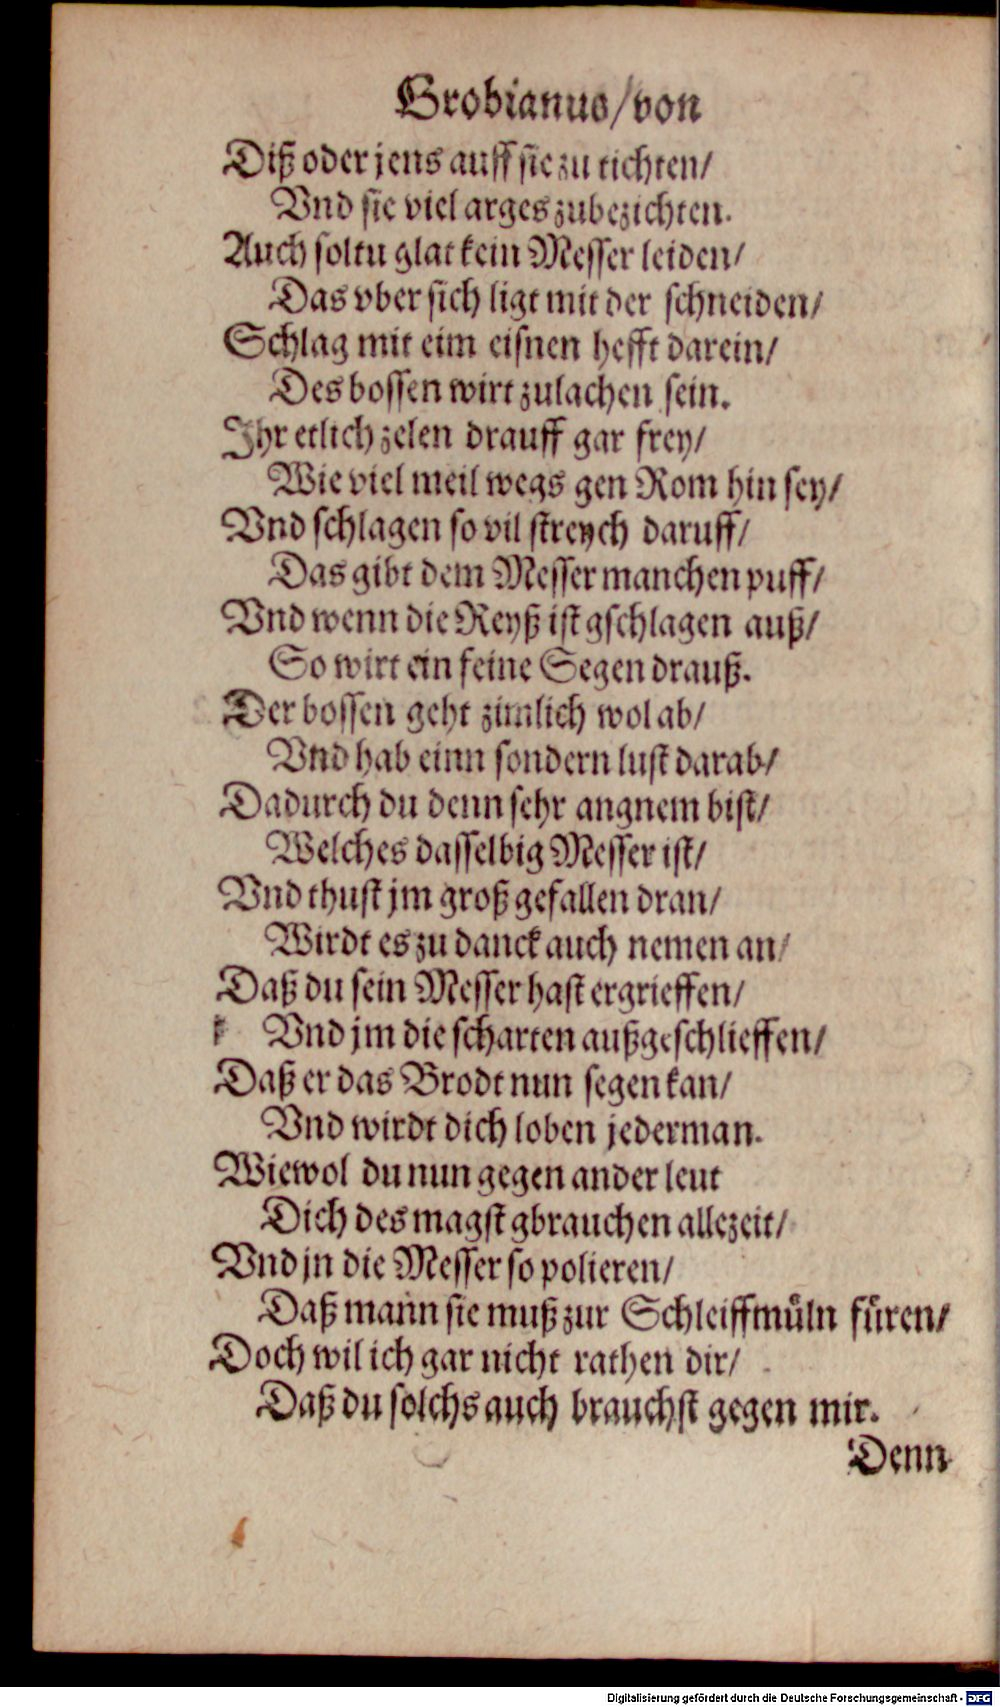 Grobianus/von
Diß oder jens auff sie zu tichten/
Vnd sie viel arges zubezichten.
Auch soltu glat kein Messer leiden/
Das vber sich ligt mit der schneiden/
Schlag mit eim eisnen hefft darein/
Des bossen wirt zulachen sein.
Ihr etlich zelen drauff gar frey/
Wie viel meil wegs gen Rom hin sey/
Vnd schlagen so vil streych daruff/
Das gibt dem Messer manchen puff/
Vnd wenn die Reyß ist gschlagen auß/
So wirt ein feine Segen drauß.
Der bossen geht zimlich wol ab/
Vnd hab einn sondern lust darab/
Dadurch du denn sehr angnem bist/
Welches dasselbig Messer ist/
Vnd thust jm groß gefallen dran/
Wirdt es zu danck auch nemen an/
Daß du sein Messer hast ergrieffen/
Vnd jm die scharten außgeschlieffen/
Daß er das Brodt nun segen kan/
Vnd wirdt dich loben jederman.
Wiewol du nun gegen ander leut
Dich des magst gbrauchen allezeit/
Vnd jn die Messer so polieren/
Daß mann sie muß zur Schleiffmüln füren/
Doch wil ich gar nicht rathen dir/
Daß du solchs auch brauchst gegen mir.
Denn
Digitalisierung gefördert durch die Deutsche Forschungsgemeinschaft - DFG